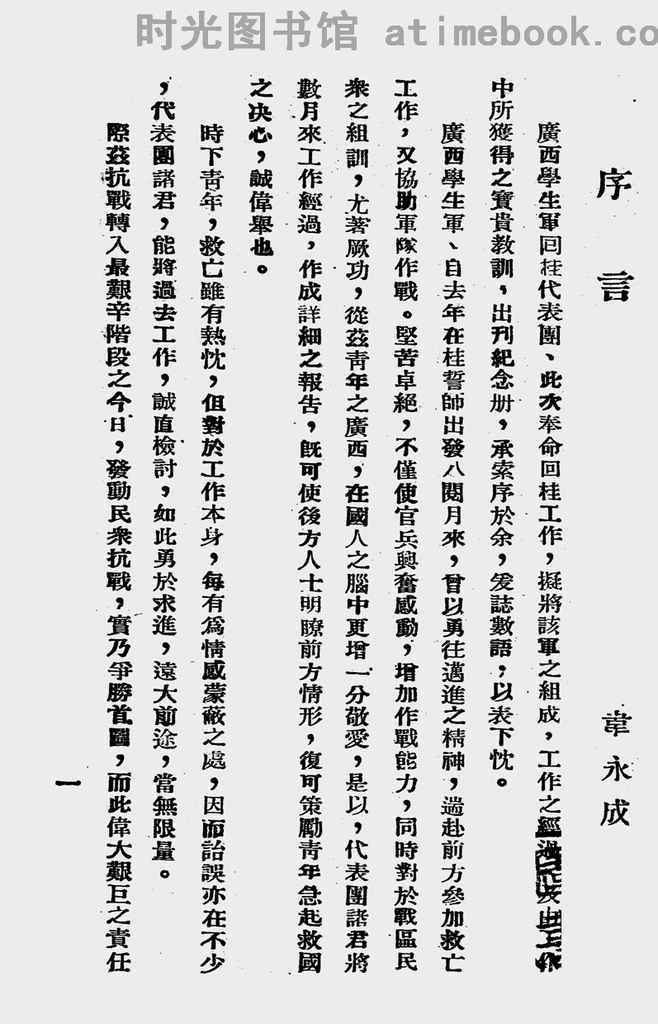 时光图书馆 atimebook.co
序言
韋永成
廣西學生軍囘桂代表團、此次奉命回桂工作，擬將該軍之組成，工作之經過
中所獲得之寶貴教訓，出刋紀念册，承索序於余，爰誌數語；以表下忱。
廣西學生軍、自去年在桂誓師出發八閱月來，曾以勇往邁進之精神，遄赴前方參加救亡
工作，又協助軍隊作戰。堅苦卓絕，不僅使官兵興奮感動，增加作戰能力，同時對於戰區民
衆之組訓，尤著厥功，從茲靑年之廣西，在國人之腦中更增一分敬愛，是以，代表團諸君將
數月來工作經過，作成詳細之報告，旣可使後方人士明瞭前方情形，復可策勵靑年急起救國
之決心，誠偉舉也。
時下靑年，救亡雖有熱忱，但對於工作本身，每有爲情感蒙蔽之處，因而詒誤亦在不少
，代表團諸君，能將過去工作，誠直檢討，如此勇於求進，遠大前途，當無限量。
際茲抗戰轉入最艱辛階段之今日，發動民衆抗戰，實乃爭勝首圖，而此偉大艱巨之責任
一